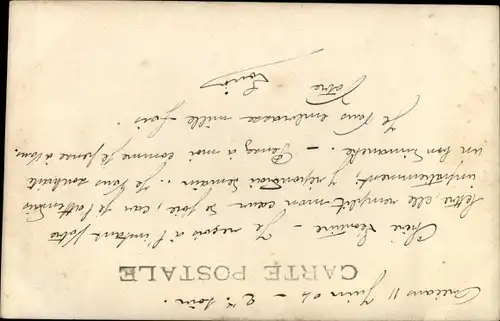 11 Juin 04 – 2h soir.
CARTE POSTALE
Chère Léontine – Je reçois à l'instant Votre
lettre, elle remplit mon cœur de joie, car je l'attendais
impatiemment, y répondrai demain.. Je Vous souhaite
un bon Dimanche. – Pensez à moi comme je pense à Vous.
Je Vous embrasse mille fois.
Votre
Louis